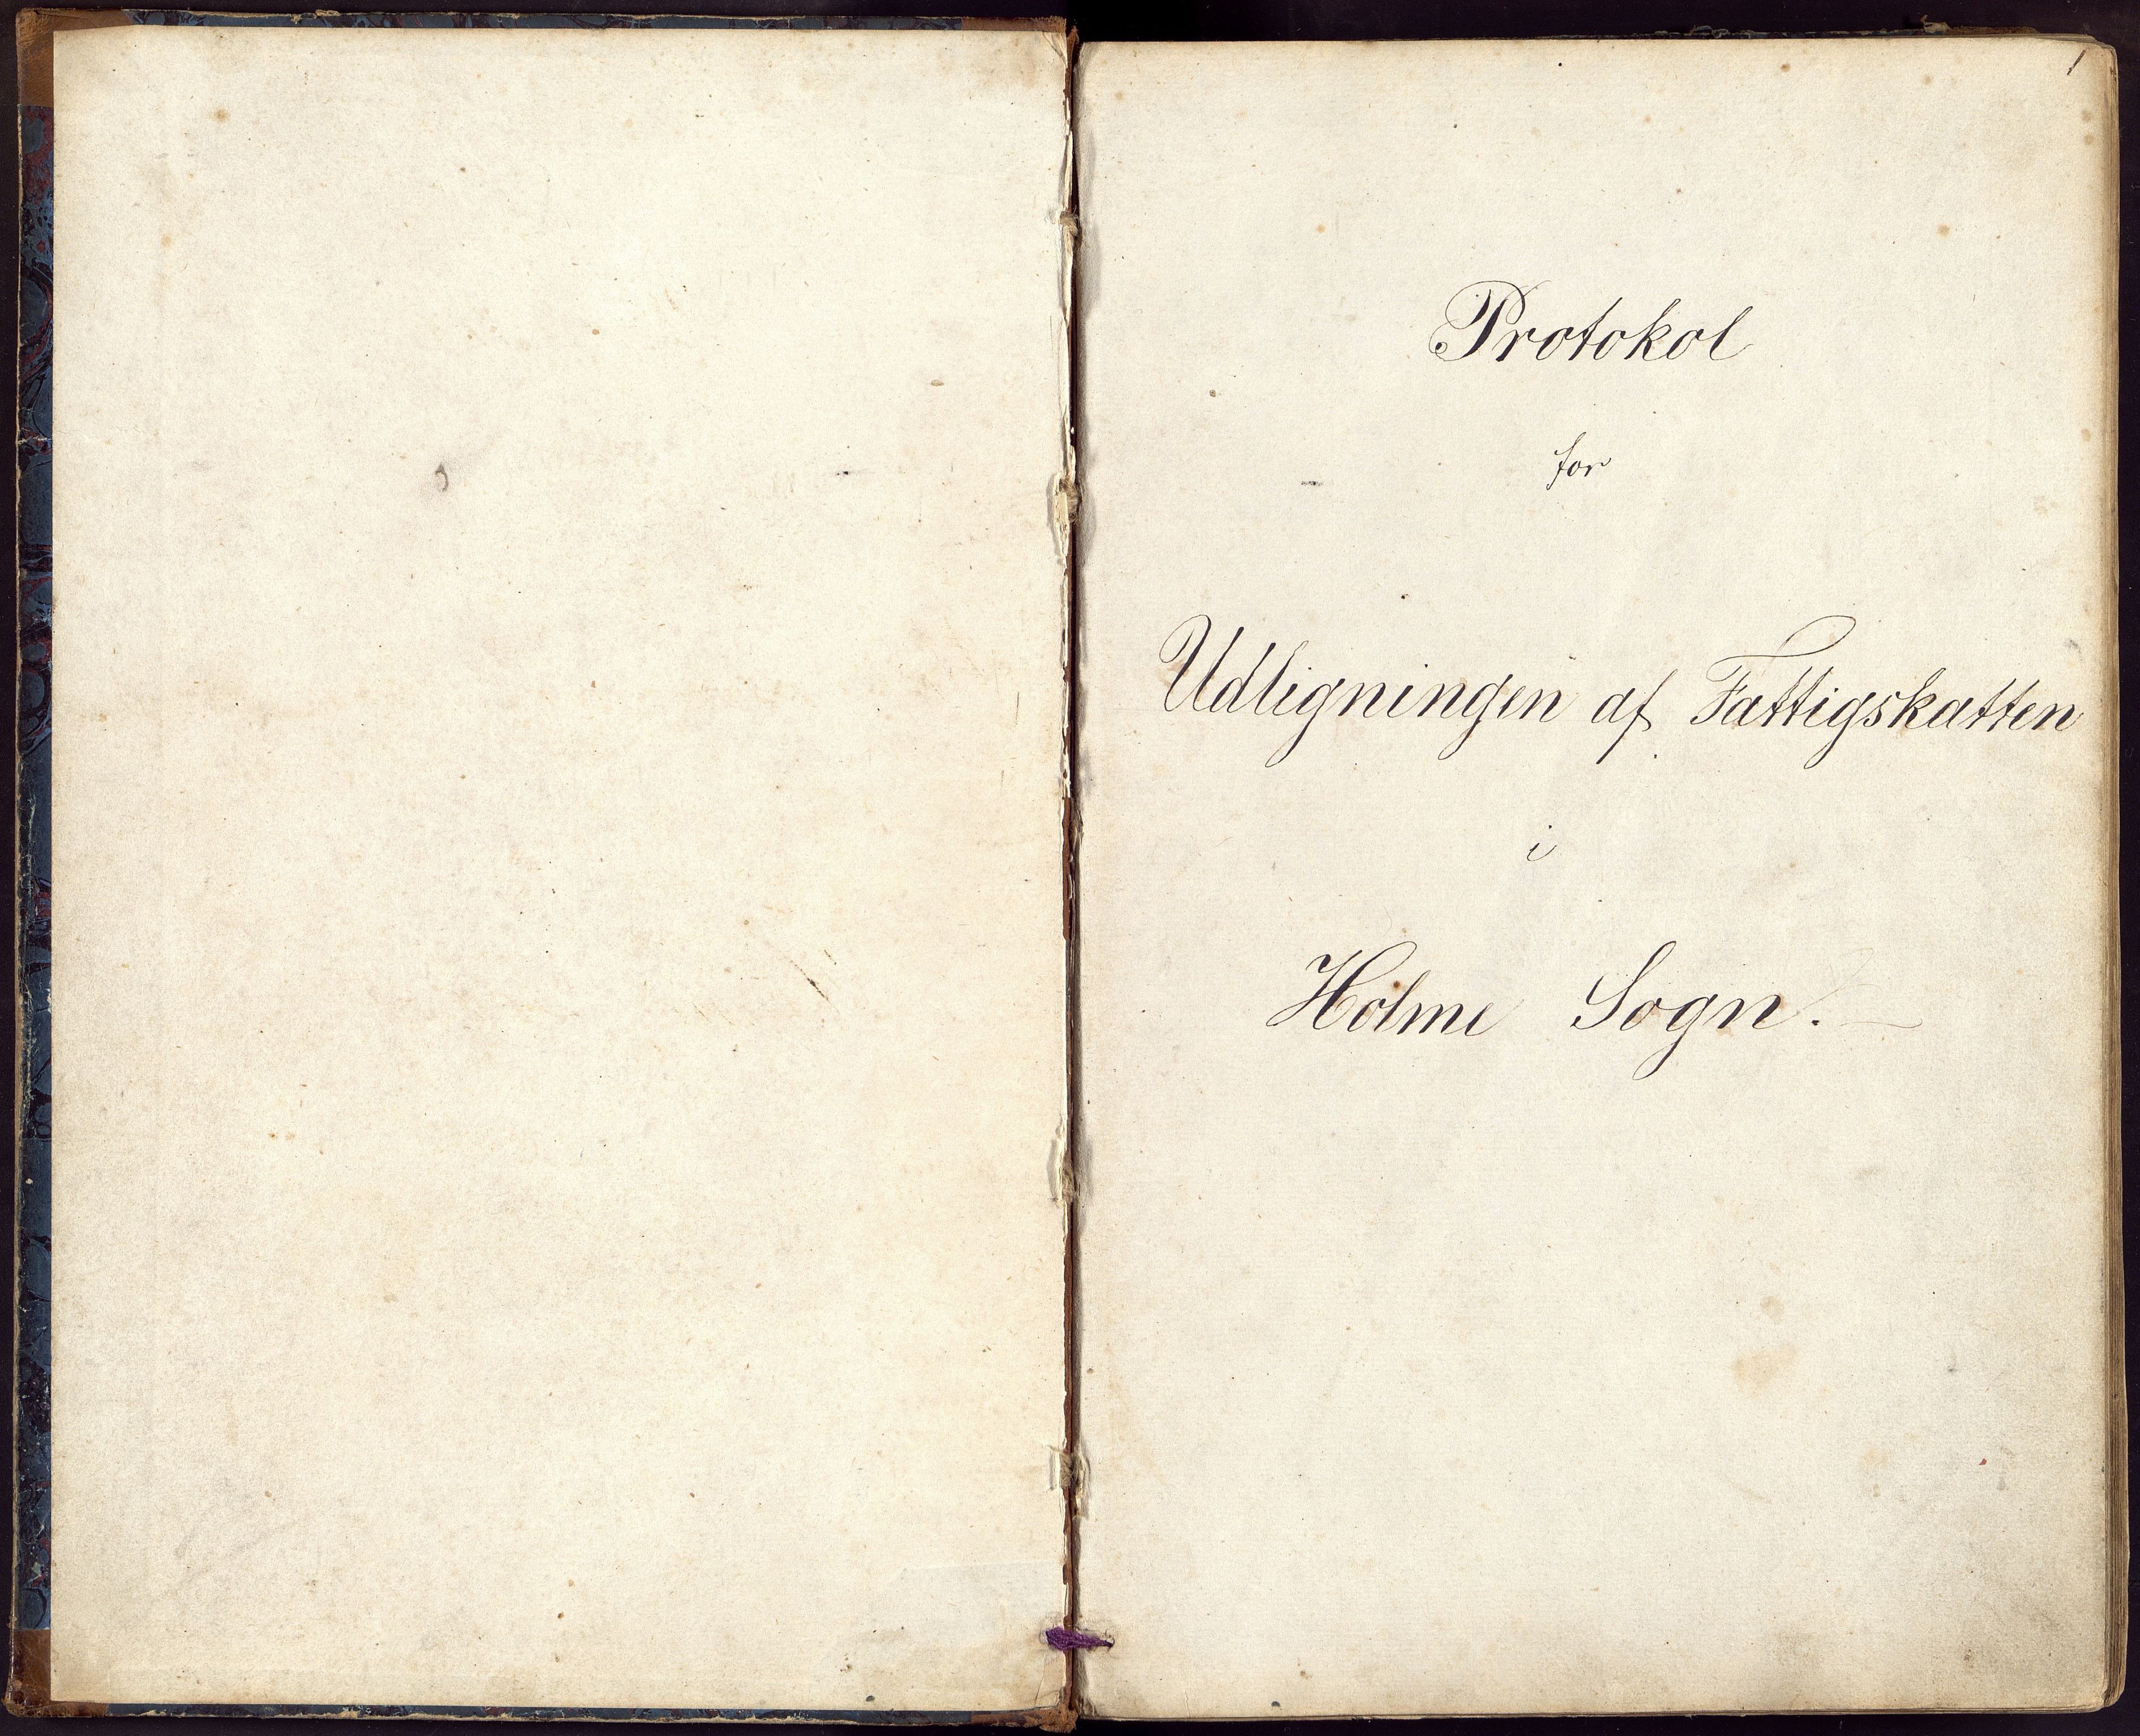 1
Protokol
for
Udligningen af Fattigskatten
i
Holme Sogn.